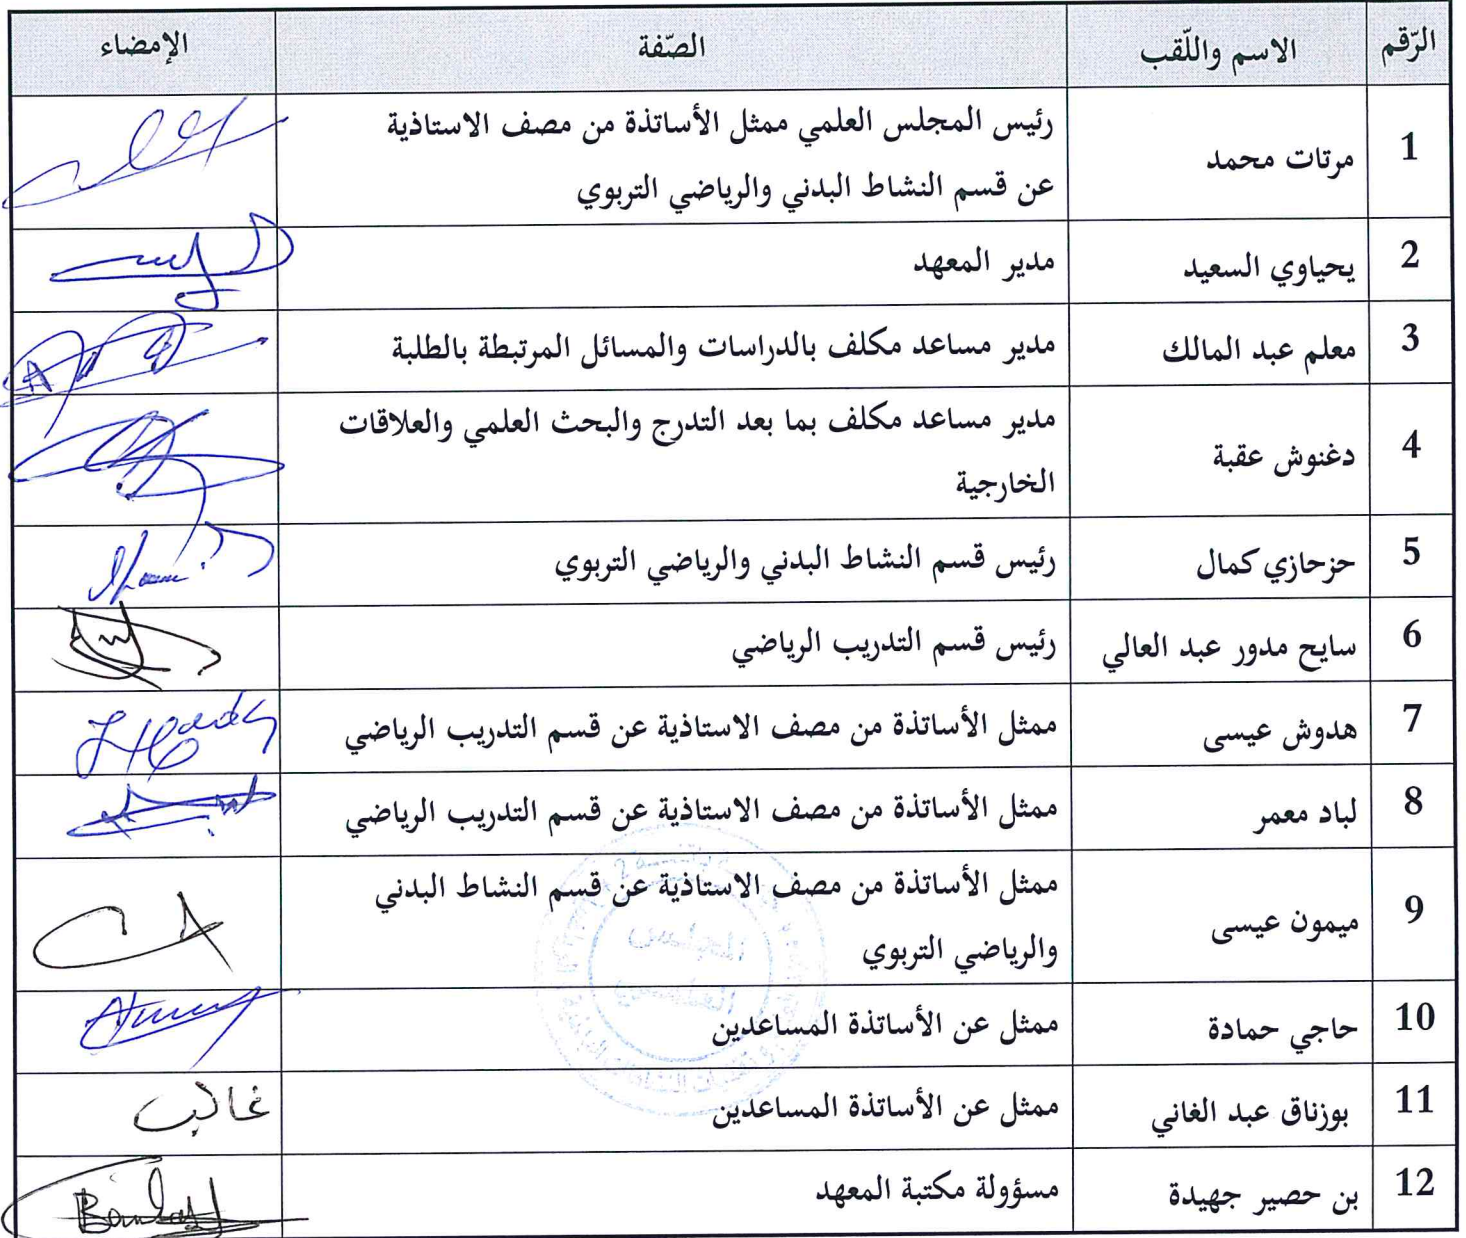 الرّقم الاسم واللّقب الصّفة الإمضاء
1 مرتات محمد رئيس المجلس العلمي ممثل الأساتذة من مصف الاستاذية
عن قسم النشاط البدني والرياضي التربوي
2 يحياوي السعيد مدير المعهد
3 معلم عبد المالك مدير مساعد مكلف بالدراسات والمسائل المرتبطة بالطلبة
4 دغنوش عقبة مدير مساعد مكلف بما بعد التدرج والبحث العلمي والعلاقات
الخارجية
5 حزحازي كمال رئيس قسم النشاط البدني والرياضي التربوي
6 سايح مدور عبد العالي رئيس قسم التدريب الرياضي
7 هدوش عيسى ممثل الأساتذة من مصف الاستاذية عن قسم التدريب الرياضي
8 لباد معمر ممثل الأساتذة من مصف الاستاذية عن قسم التدريب الرياضي
9 ميمون عيسى ممثل الأساتذة من مصف الاستاذية عن قسم النشاط البدني
والرياضي التربوي
10 حاجي حمادة ممثل عن الأساتذة المساعدين
11 بوزناق عبد الغاني ممثل عن الأساتذة المساعدين غائب
12 بن حصير جهيدة مسؤولة مكتبة المعهد